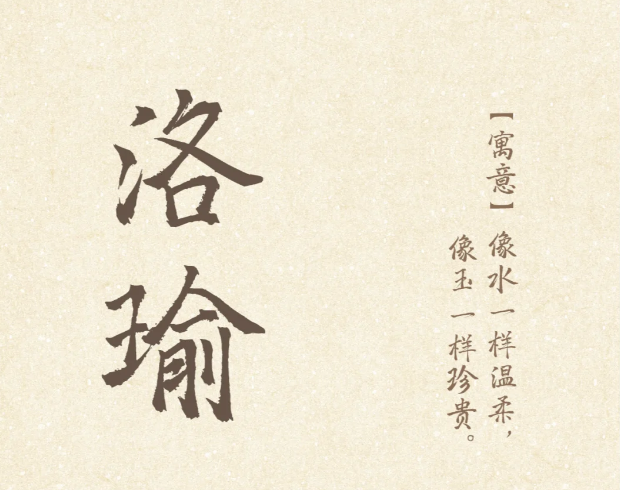 洛瑜
【寓意】像水一样温柔，
像玉一样珍贵。